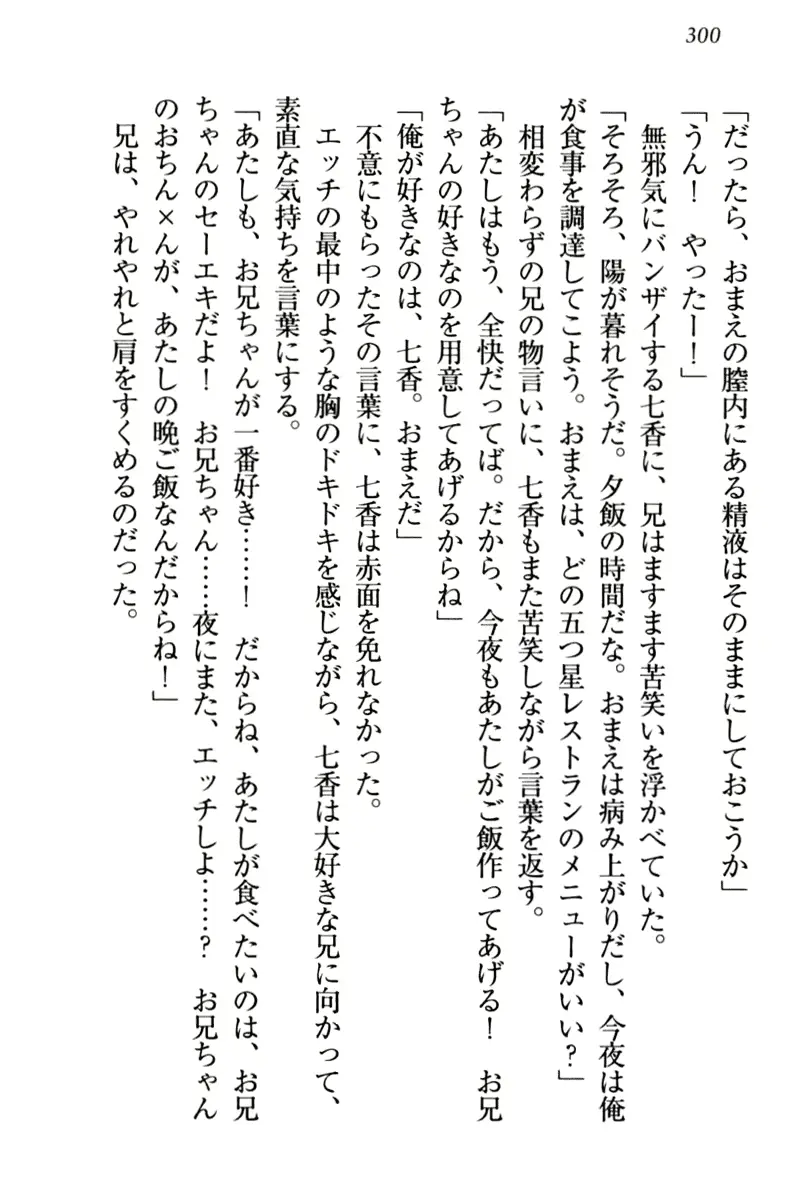 300
「だったら、おまえの膣内にある精液はそのままにしておこうか」
「うん！　やったー！」
　無邪気にバンザイする七香に、兄はますます苦笑いを浮かべていた。
「そろそろ、陽が暮れそうだ。夕飯の時間だな。おまえは病み上がりだし、今夜は俺
が食事を調達してこよう。おまえは、どの五つ星レストランのメニューがいい？」
　相変わらずの兄の物言いに、七香もまた苦笑しながら言葉を返す。
「あたしはもう、全快だってば。だから、今夜もあたしがご飯作ってあげる！　お兄
ちゃんの好きなのを用意してあげるからね」
「俺が好きなのは、七香。おまえだ」
　不意にもらったその言葉に、七香は赤面を免れなかった。
　エッチの最中のような胸のドキドキを感じながら、七香は大好きな兄に向かって、
素直な気持ちを言葉にする。
「あたしも、お兄ちゃんが一番好き……！　だからね、あたしが食べたいのは、お兄
ちゃんのセーエキだよ！　お兄ちゃん……夜にまた、エッチしよ……？　お兄ちゃん
のおちん×んが、あたしの晩ご飯なんだからね！」
　兄は、やれやれと肩をすくめるのだった。